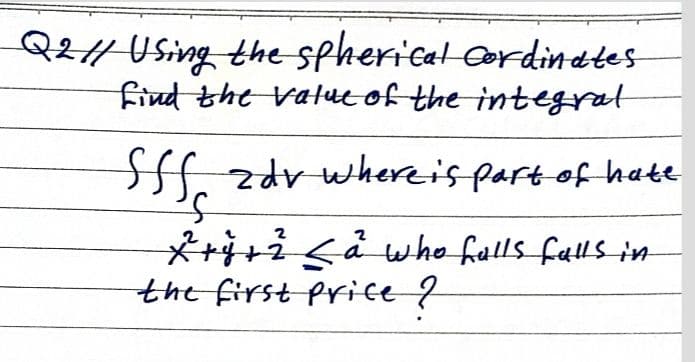 Q2// Using the spherical Cordinates
find the value of the integral
∫∫∫_S zdv where is part of hate
x²+y²+z² ≤ a² who falls falls in
the first price ?